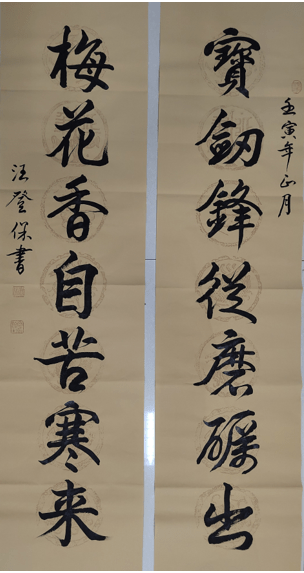 壬寅年正月
寶劒鋒從磨礪出
梅花香自苦寒来
汪登保書